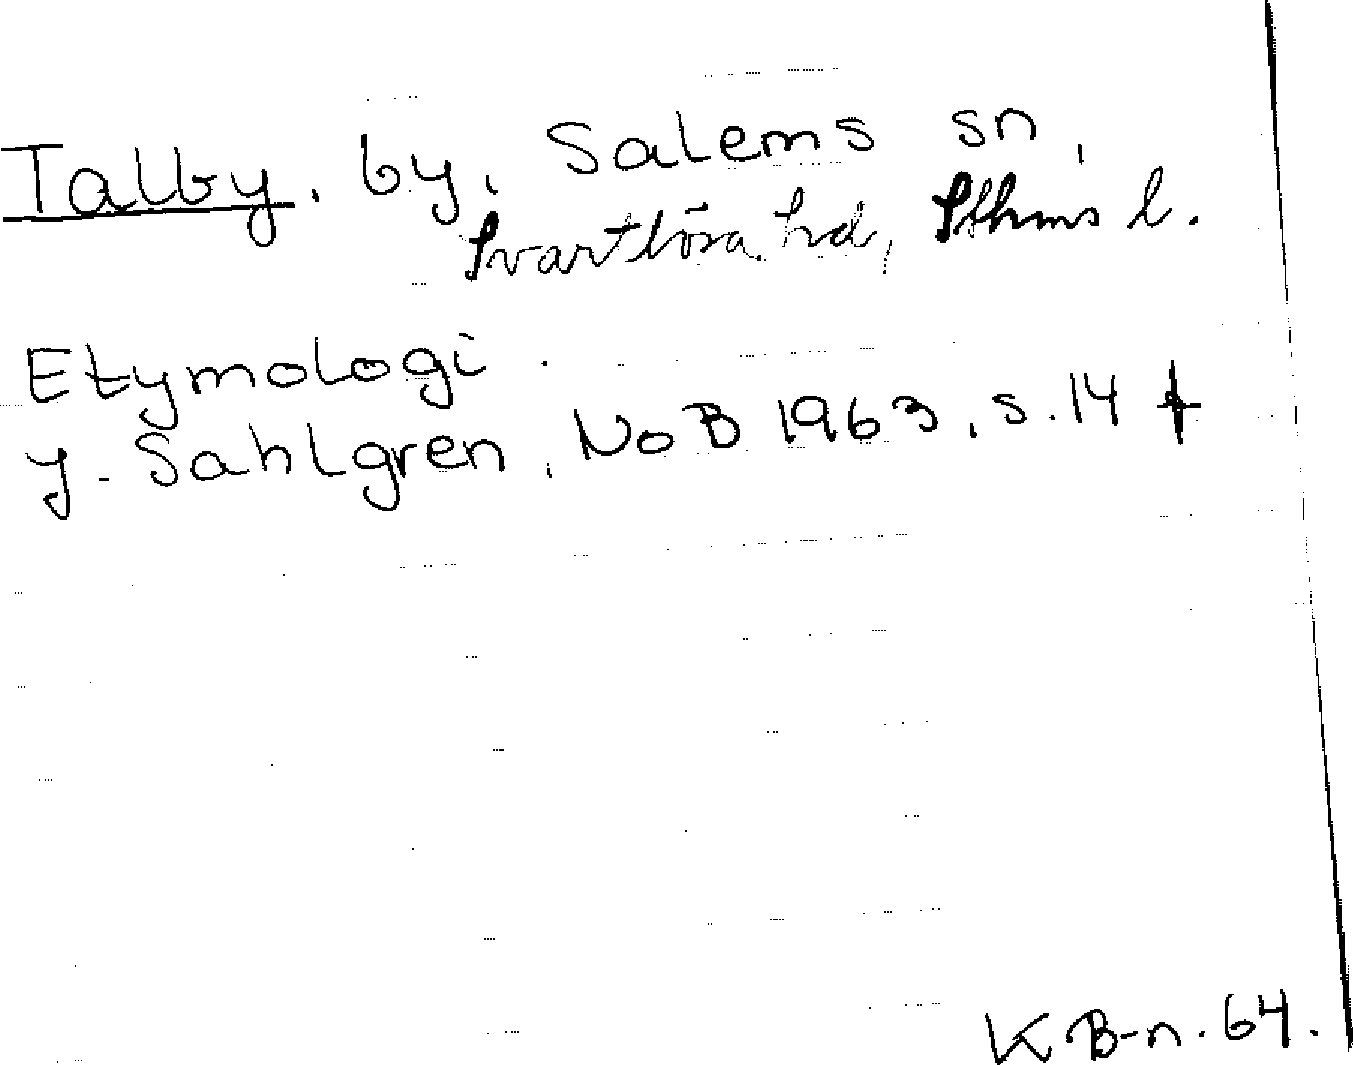 Talby, by, Salems sn,
Svartlösa hd, Sthms l.
Etymologi.
J. Sahlgren, NoB 1963, s. 14 f
K B-n. 64.